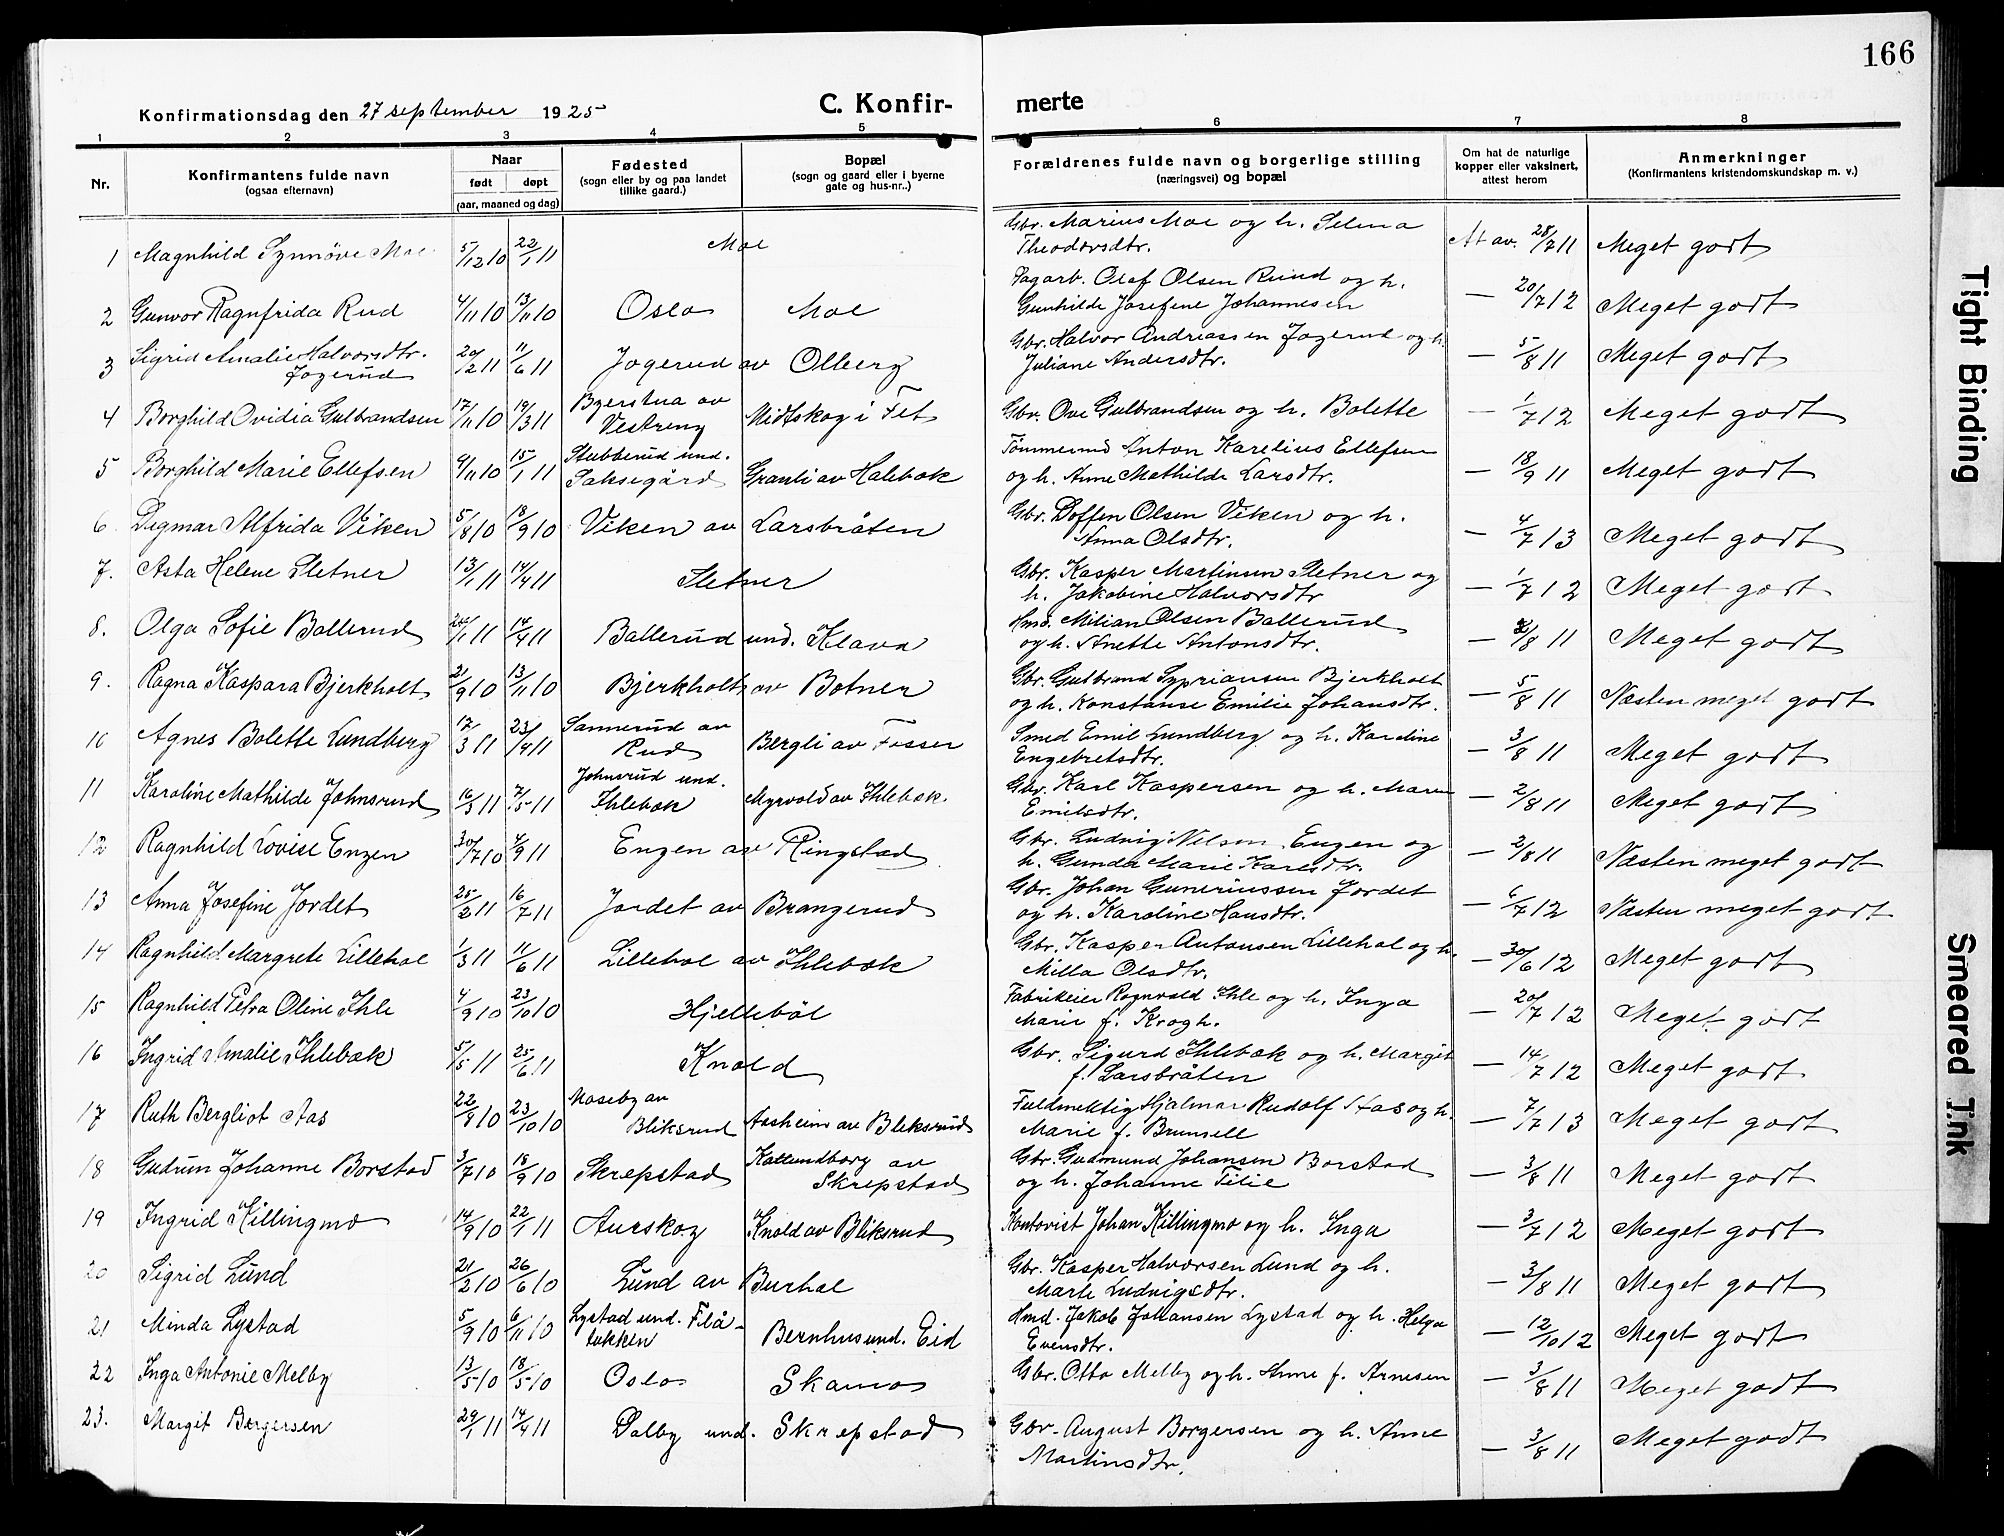 166
Konfirmationsdag den 27 september 1925
C. Konfir-
merte
1 2 3 4 5 6 7 8
Nr.
Konfirmantens fulde navn
(ogsaa efternavn)
Naar
født døpt
(aar, maaned og dag)
Fødested
(sogn eller by og paa landet
tillike gaard.)
Bopæl
(sogn og gaard eller i byerne
gate og hus-nr..)
Forældrenes fulde navn og borgerlige stilling
(næringsvei) og bopæl
Om hat de naturlige
kopper eller vaksinert,
attest herom
Anmerkninger
(Konfirmantens kristendomskundskap m. v.)
1 Magnhild Synnøve Moe 5/12 10 22/1 11 Moe Gbr. Marius Moe og h. Selma
Theodorsdtr. At av. 28/7 11 Meget godt
2 Gunvor Ragnfrida Rud 4/11 10 13/11 10 Oslo Moe Sagarb. Olaf Olsen Ruud og h.
Gunhilde Josefine Johannesen — 20/7 12 Meget godt
3 Sigrid Amalie Halvorsdtr.
Jogerud 20/2 11 11/6 11 Jogerud av Olberg Gbr. Halvor Andreassen Jogerud og h.
Juliane Andersdtr. — 5/8 11 Meget godt
4 Borghild Ovidia Gulbrandsen 17/11 10 19/3 11 Byerstua av
Vestreng Midtskog i Fet Gbr. Ove Gulbrandsen og h. Bolette — 1/7 12 Meget godt
5 Borghild Marie Ellefsen 9/11 10 15/1 11 Stubberud und.
Saksegård Granli av Halebæk Tømmermd Anton Karelius Ellefsen
og h. Anne Mathilde Larsdtr. — 18/9 11 Meget godt
6 Degmar Alfrida Viken 5/8 10 18/9 10 Viken av Larsbråten Gbr. Doffen Olsen Viken og h.
Anna Olsdtr. — 4/7 13 Meget godt
7. Asta Helene Sletner 13/1 11 14/4 11 Sletner Gbr. Kasper Martinsen Sletner og
h. Jakobine Halvorsdtr — 1/7 12 Meget godt
8. Olga Sofie Ballerud 24/1 11 14/4 11 Ballerud und. Klava Hmd. Milian Olsen Ballerud
og h. Anette Antonsdtr. — /8 11 Meget godt
9. Ragna Kaspara Bjerkholt 21/9 10 13/11 10 Bjerkholt av Botner Gbr. Gulbrand Sypriansen Bjerkholt
og h. Konstanse Emilie Johansdtr. — 5/8 11 Næsten meget godt
10 Agnes Bolette Lundberg 17/3 11 23/4 11 Sannerud av
Rud Bergli av Fosser Smed Emil Lundberg og h. Karoline
Engebretsdtr. — 3/8 11 Meget godt
11 Karoline Mathilde Johnsrud 16/3 11 7/5 11 Johnsrud und.
Ihlebæk Myrvold av Ihlebæk. Gbr. Karl Kaspersen og h. Maren
Emilsdtr. — 2/8 11 Meget godt
12 Ragnhild Lovise Engen 30/7 10 4/9 11 Engen av Ringstad Gbr. Ludvig Nilsen Engen og
h. Gunda Marie Karlsdtr. — 2/8 11 Næsten meget godt
13 Anna Josefine Jordet 25/2 11 16/7 11 Jordet av Brangerud Gbr. Johan Guneriussen Jordet
og h. Karoline Hansdtr. — 6/7 12 Næsten meget godt
14 Ragnhild Margrete Lillehol 1/3 11 11/6 11 Lillehol av Ihlebæk Gbr. Kasper Antonsen Lillehol og h.
Milla Olsdtr. — 30/6 12 Meget godt
15 Ragnhild Petra Oline Ihle 4/9 10 23/10 10 Hjellebøl Fabrikeier Ragnvald Ihle og h. Inga
Marie f. Krogh. — 20/7 12 Meget godt
16 Ingrid Amalie Ihlebæk 5/5 11 25/6 11 Knold Gbr. Sigurd Ihlebæk og h. Margit
f. Larsbråten — 14/7 12 Meget godt
17 Ruth Bergliot Aas 22/8 10 23/10 10 Moseby av
Bliksrud Aasheim av Bleksrud Fuldmektig Hjalmar Rudolf Aas og h.
Marie f. Brunsell — 7/7 13 Meget godt
18 Gudrun Johanne Borstad 3/7 10 18/9 10 Skrepstad Kallundborg av
Skrepstad Gbr. Gudmund Johansen Borstad
og h. Johanne Tilie — 3/8 11 Meget godt
19 Ingrid Killingmo 14/9 10 22/1 11 Aurskog Knold av Bliksrud Kontorist Johan Killingmo og h. Inga — 3/7 12 Meget godt
20 Sigrid Lund 21/2 10 26/6 10 Lund av Burhol Gbr. Kasper Halvorsen Lund og h.
Marte Ludvigsdtr. — 3/8 11 Meget godt
21 Minda Lystad 5/9 10 6/11 10 Lystad und. Flå-
tukken Bernhus und. Eid Hmd. Jakob Johansen Lystad og h. Helga
Evensdtr. — 12/10 12 Meget godt
22 Inga Antonie Melby 13/5 10 18/5 10 Oslo Skamo Gbr. Otto Melby og h. Anne f. Arnesen — 3/8 11 Meget godt
23. Margit Borgersen 29/1 11 14/4 11 Dalby und. Skrepstad Gbr. August Borgersen og h. Anne
Martinsdtr. — 3/8 11 Meget godt
Tight Binding
Smeared Ink